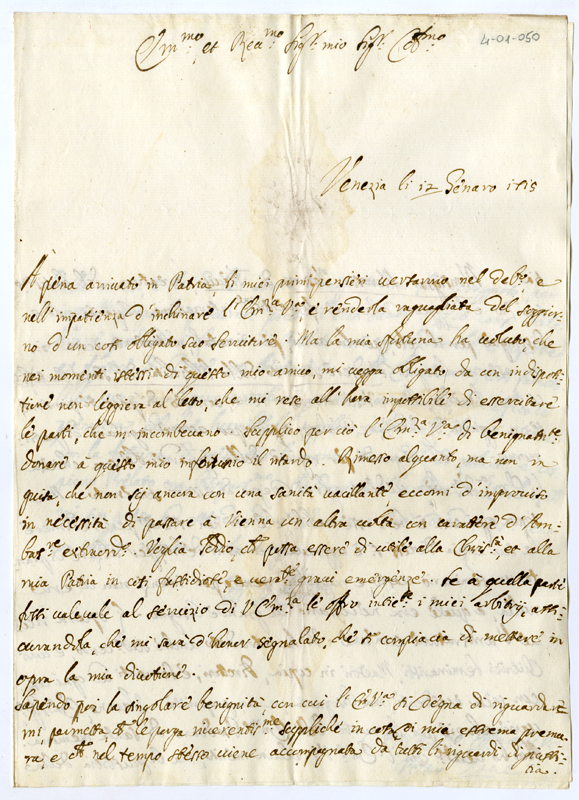 Em.mo et Rev.mo Sig.r mio Sig.r Col.mo
4-01-050
Venezia li 12 Genaro 1715
A pena arrivato in Patria, li miei primi pensieri versarono nel deb.o e
nell' impatienza d' inchinare l' Em.za V.a e renderla raguagliata del soggior-
no d' un così obligato suo servitore. Ma la mia fortuna ha voluto, che
nei momenti istessi di questo mio arrivo, mi vegga obligato da un indisposi-
tione non leggiera al letto, che mi rese all' hora impossibile di esercitare
le parti, che m' incombevano. Supplico per ciò l' Em.za V.a di benignam.te
donare à questo mio infortunio il ritardo. Rimesso alquanto, ma non in
guisa, che non sij ancora con una sanità vacillante eccomi d' improviso
in necessità di passare à Vienna un' altra volta con carattere d' Am-
bas.re extraord.o. Voglia Iddio ch' possa essere di utile alla Christ.tà, et alla
mia Patria in così fastidiose, e veram.te gravi emergenze. Se à quella parte
fossi valevole al servizio di V Em.za le offro insie.e i miei arbitrij, assi-
curandola, che mi sarà d' honor segnalato, che si compiacia di mettere in
opra la mia divotione.
Sapendo poi la singolare benignità con cui l' Em.za V.a si degna di riguardarmi
mi permetta ch' le porga riverentis.me suppliche in cosa di mia estrema premu-
ra, e ch' nel tempo stesso viene accompagnata da tutti li riguardi di giusti-
tia.